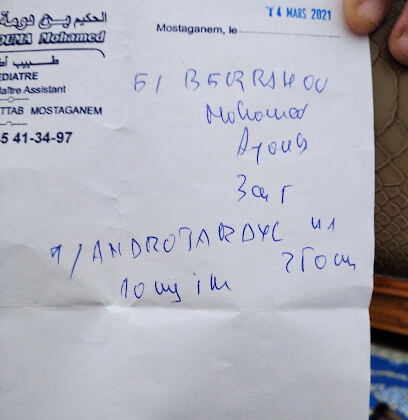 الحكيم بن دومة
OUMA Mohamed
طبيب أط
EDIATRE
laître Assistant
TTAB MOSTAGANEM
5 41-34-97
Mostaganem, le
14 MARS 2021
Mohamed
Ayoub
1/ ANDROTARDYL
250 mg
10 mg im